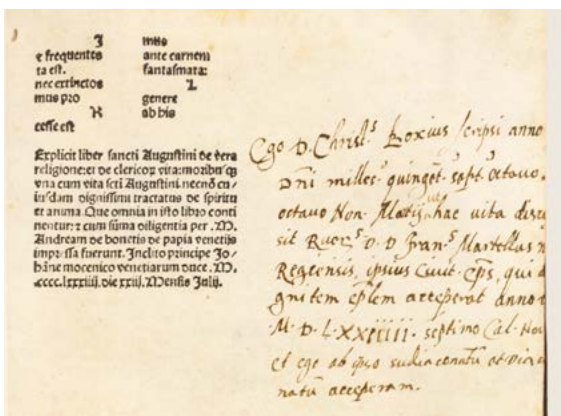 I mus
e frequentes ante carnem
ta est. fantasmata:
nec extinctos L
mus pro genere
K ab his
cesse est
Explicit liber sancti Augustini de vera
religione: et de clericoꝝ vita: moribusqꝫ
vna cum vita scti Augustini necnõ eiu/
sdam dignissimi tractatus de spiritu
et anima. Que omnia in isto libro conti
nentur: et cum suma diligentia per .M.
Andream de bonetis de papia venetijs
impressa fuerunt. Inclito principe Jo/
hãne mocenico venetiarum duce .M.
.cccc.lxxxiiij. die xxiij. Mensis Julij.
Ego D. Christ.s Boxius scripsi anno
Dñi milles.o quinget.o sept. octauo.
octauo Non. Martij hac vita disces
sit D. D. Fran.s Martellus
Regiensis, ipsius Ciuit. Eps, qui
gnitem accéperat anno
M. D. L. XXIIIII. septimo Cal.
et ego ab ipso
natũ acceperam.